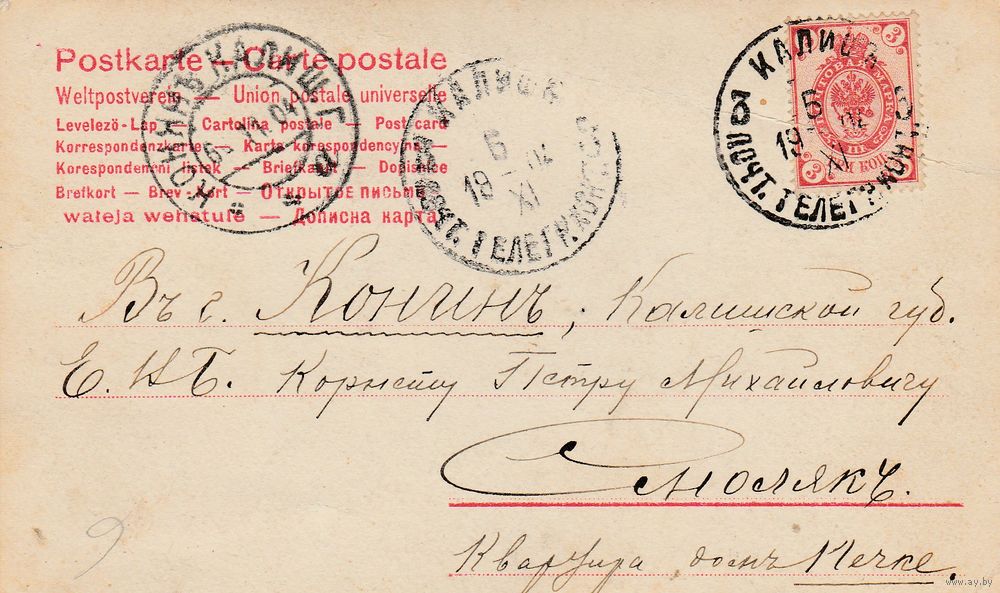 Postkarte — Carte postale
Weltpostverein — Union postale universelle
Levelező-Lap — Cartolina postale — Post card
Korrespondenzkarte — Karta korespondencyjna —
Korespondenční lístek — Briefkaart — Dopisnice
Brefkort — Brev-kort — ОТКРЫТОЕ ПИСЬМО
— Дописна карта
КОНИНЪ КАЛИШ. Г.
КАЛИШЪ
5
XI
1904
ПОЧТ. ТЕЛЕГР. КОНТ.
КАЛИШЪ
5
XI
1904
ПОЧТ. ТЕЛЕГР. КОНТ.
3
3
ПОЧТОВАЯ МАРКА
3 КОП.
Въ г. Конинъ, Калишской губ.
Е. В Б. Корнету Петру Михайловичу
Смолякъ.
Квартира домъ Печке.
9
www.ay.by